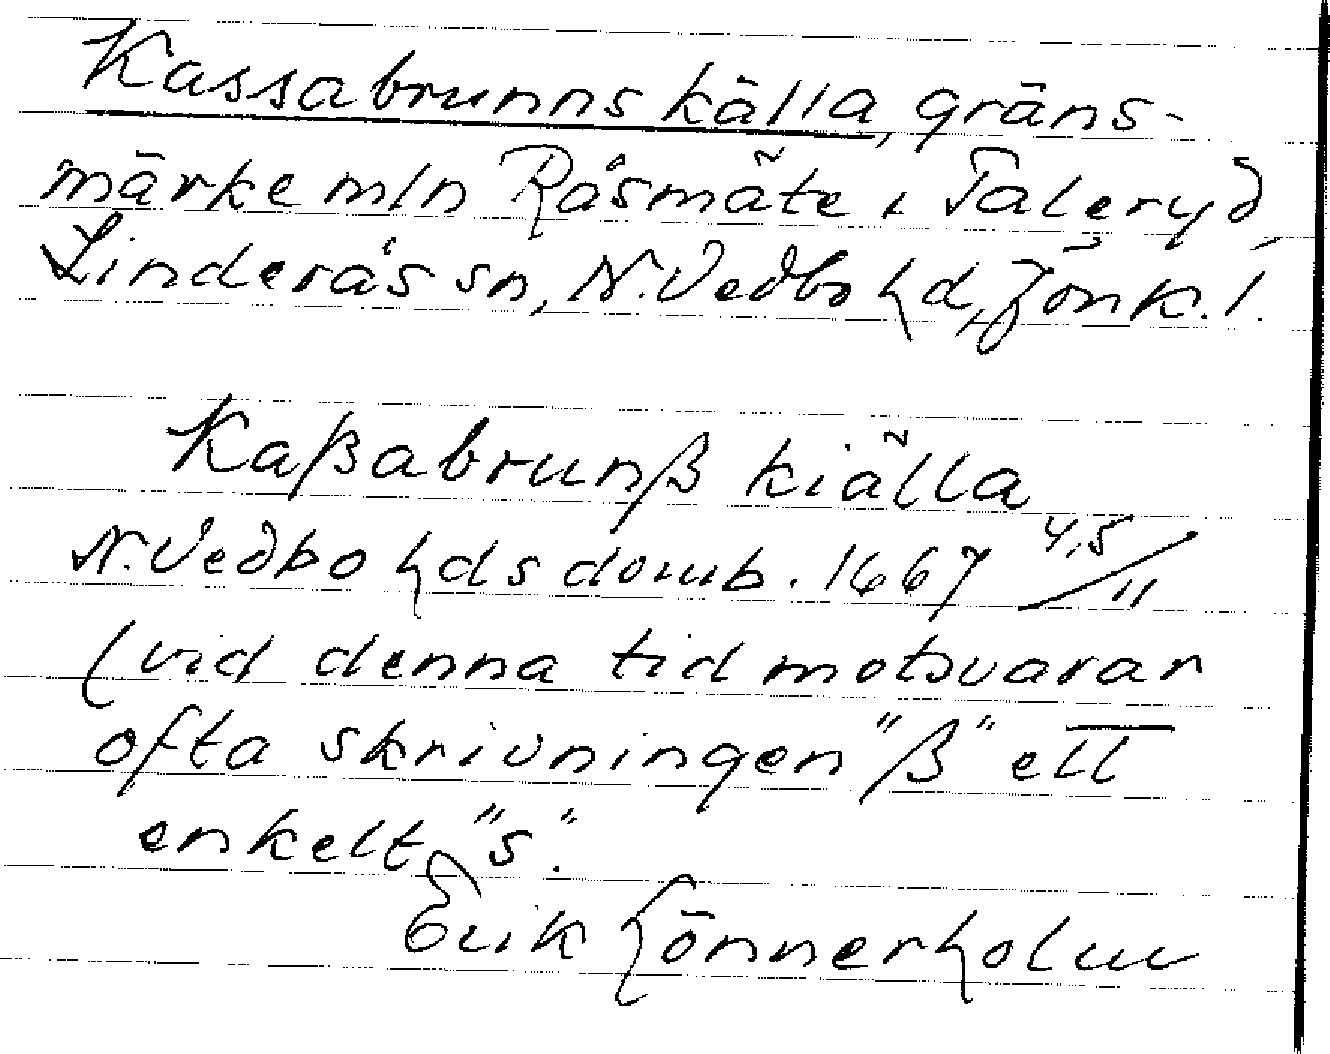 Kassabrunns källa, gräns-
märke mln Råsmäte i Taleryd,
Linderås sn, N. Vedbo hd, Jönk. l.
Kaßabrunß kiälla
N. Vedbo hds domb. 1667 4,5/11
(vid denna tid motsvarar
ofta skrivningen "ß" ett
enkelt "s".
Erik Hönnerholm